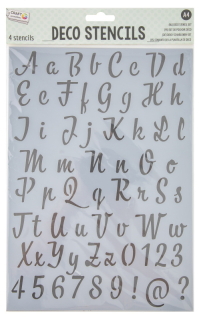 CRAFT
DECO STENCILS
A4
4 stencils
A a B b C c D d
E e F f G g H h
I i J j K k L l
M m N n O o
P p Q q R r S s
T t U u V v W w
X x Y y Z z 0 1 2 3
4 5 6 7 8 9 ! @ ?